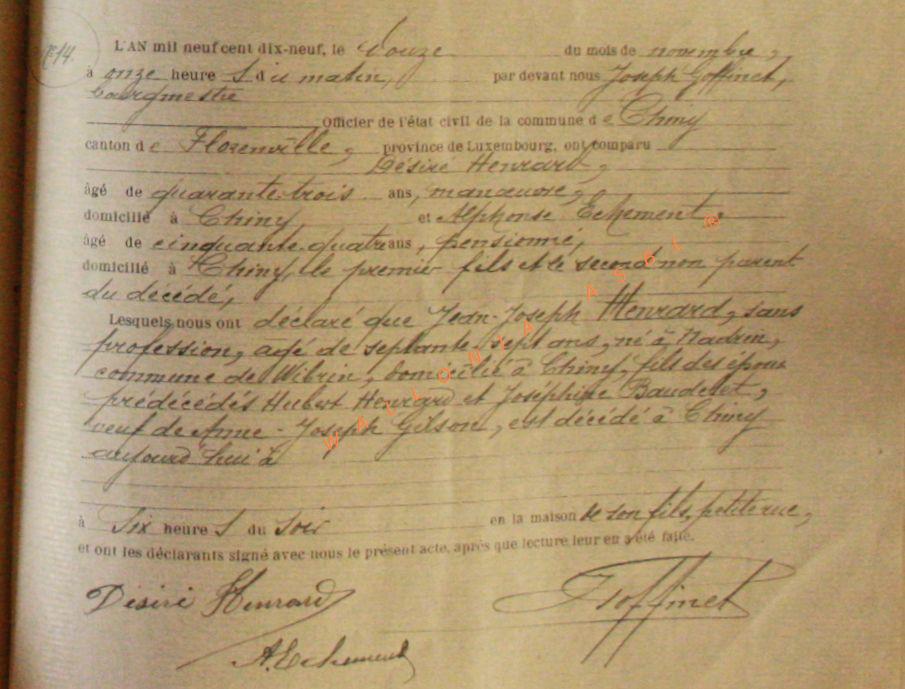 N° 14.
L'AN mil neuf cent dix-neuf, le douze du mois de novembre,
à onze heureS du matin, par devant nous Joseph Goffinet,
bourgmestre
Officier de l'état civil de la commune de Chiny
canton de Florenville, province de Luxembourg, ont comparu
Désiré Henrard,
âgé de quarante-trois ans, manœuvre,
domicilié à Chiny et Alphonse Echement,
âgé de cinquante-quatre ans, pensionné,
domicilié à Chiny, le premier fils et le second non parent
du décédé,
Lesquels nous ont déclaré que Jean-Joseph Henrard, sans
profession, agé de septante-sept ans, né à Nadrin,
commune de Wibrin, domicilié à Chiny, fils des époux
prédécédés Hubert Henrard et Joséphine Baudelet,
veuf de Anne-Joseph Gilson, est décédé à Chiny
aujourd'hui à
à Six heureS du Soir en la maison de son fils, petite rue,
et ont les déclarants signé avec nous le présent acte, après que lecture leur en a été faite.
Désiré Henrard JGoffinet
A. Echement
WALLONIA ASBL ©